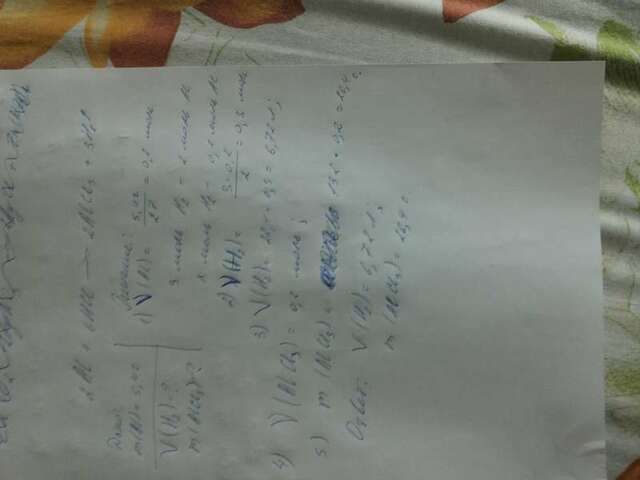 2Al + 6HCl → 2AlCl₃ + 3H₂↑
Дано:
m(Al) = 5,4г
V(H₂) = ?
m(AlCl₃) = ?
Решение:
1) ν(Al) = 5,4г / 27 = 0,2 моль
3 моль H₂ = 2 моль Al
x моль H₂ = 0,2 моль Al
2) ν(H₂) = 3·0,2 / 2 = 0,3 моль
3) V(H₂) = 22,4 · 0,3 = 6,72 л;
4) ν(AlCl₃) = 0,2 моль;
5) m(AlCl₃) = 132 · 0,2 = 26,4 г.
Ответ: V(H₂) = 6,72 л;
m(AlCl₃) = 26,4 г